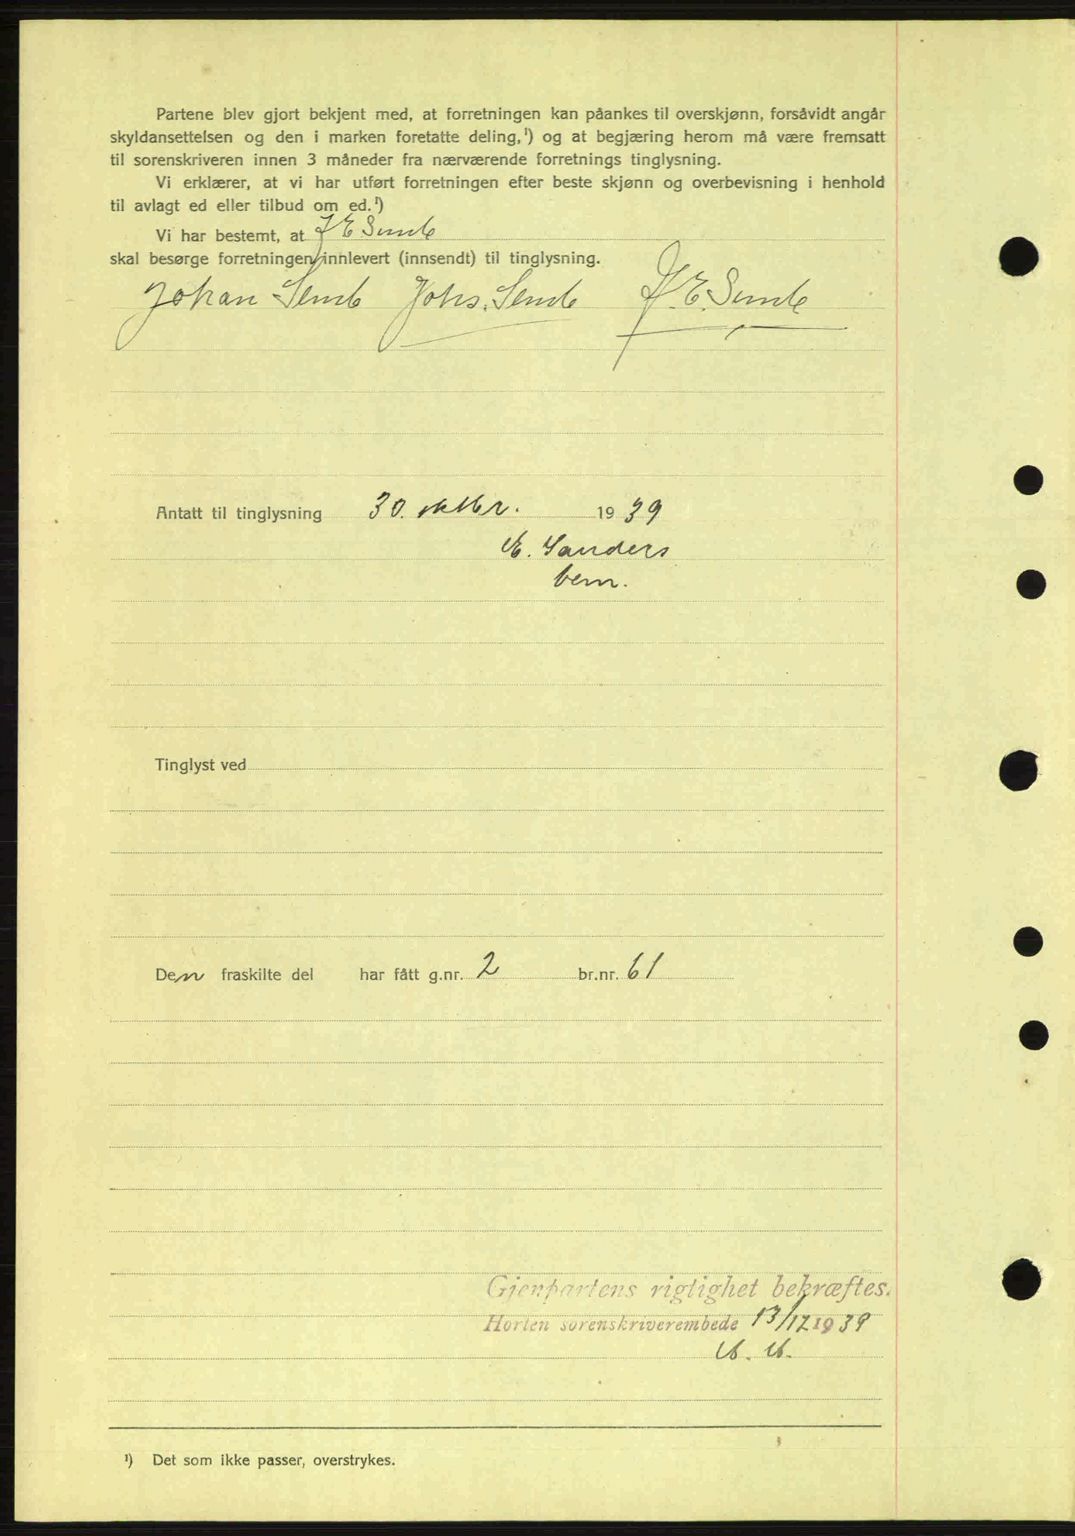 Partene blev gjort bekjent med, at forretningen kan påankes til overskjønn, forsåvidt angår
skyldansettelsen og den i marken foretatte deling,¹) og at begjæring herom må være fremsatt
til sorenskriveren innen 3 måneder fra nærværende forretnings tinglysning.
Vi erklærer, at vi har utført forretningen efter beste skjønn og overbevisning i henhold
til avlagt ed eller tilbud om ed.¹)
Vi har bestemt, at J E Sunde
skal besørge forretningen innlevert (innsendt) til tinglysning.
Johan Semb Johs. Semb J. E. Sunde
Antatt til tinglysning 30. oktbr. 1939
Sanders
bem.
Tinglyst ved
Den fraskilte del har fått g.nr. 2 br.nr. 61
Gjenpartens rigtighet bekræftes.
Horten sorenskriverembede 13/12 1939
¹) Det som ikke passer, overstrykes.